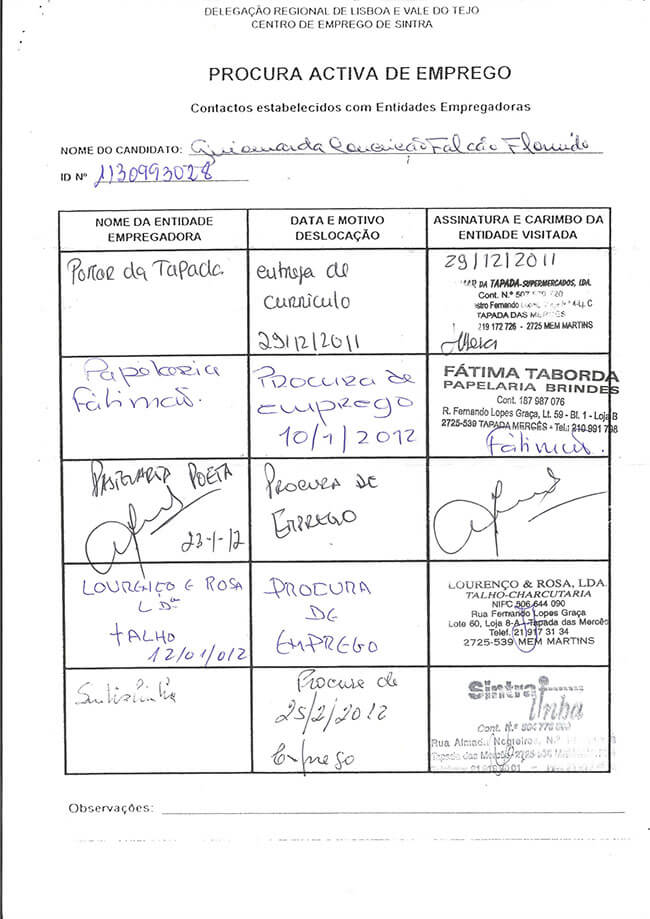 DELEGAÇÃO REGIONAL DE LISBOA E VALE DO TEJO
CENTRO DE EMPREGO DE SINTRA
PROCURA ACTIVA DE EMPREGO
Contactos estabelecidos com Entidades Empregadoras
NOME DO CANDIDATO: Guiomar da Conceição Falcão Florindo
ID Nº 1130993028
NOME DA ENTIDADE
EMPREGADORA
DATA E MOTIVO
DESLOCAÇÃO
ASSINATURA E CARIMBO DA
ENTIDADE VISITADA
da Tapada
entrega de
curriculo
29/12/2011
29/12/2011
DA TAPADA-SUPERMERCADOS, LDA.
Cont. N.º 507
Fernando
TAPADA DAS MERCÊS
219 172 726 - 2725 MEM MARTINS
Papelaria
Fátima
Procura de
emprego
10/1/2012
FÁTIMA TABORDA
PAPELARIA BRINDES
Cont. 187 987 076
R. Fernando Lopes Graça, Lt. 59 - Bl. 1 - Loja B
2725-539 TAPADA MERCÊS - Tel.: 210 991 798
PASTELARIA POETA
23-1-12
PROCURA DE
EMPREGO
LOURENÇO E ROSA
LDª
TALHO
12/01/012
PROCURA
DE
EMPREGO
LOURENÇO & ROSA, LDA.
TALHO-CHARCUTARIA
NIFC 506 644 090
Rua Fernando Lopes Graça
Lote 60, Loja 8-A - Tapada das Mercês
Telef. 21 917 31 34
2725-539 MEM MARTINS
Procura de
25/2/2012
Emprego
Sintra
linha
Cont. N.º
Rua Almada Negreiros, N.º
Tapada das Mercês 2725-536
Observações: